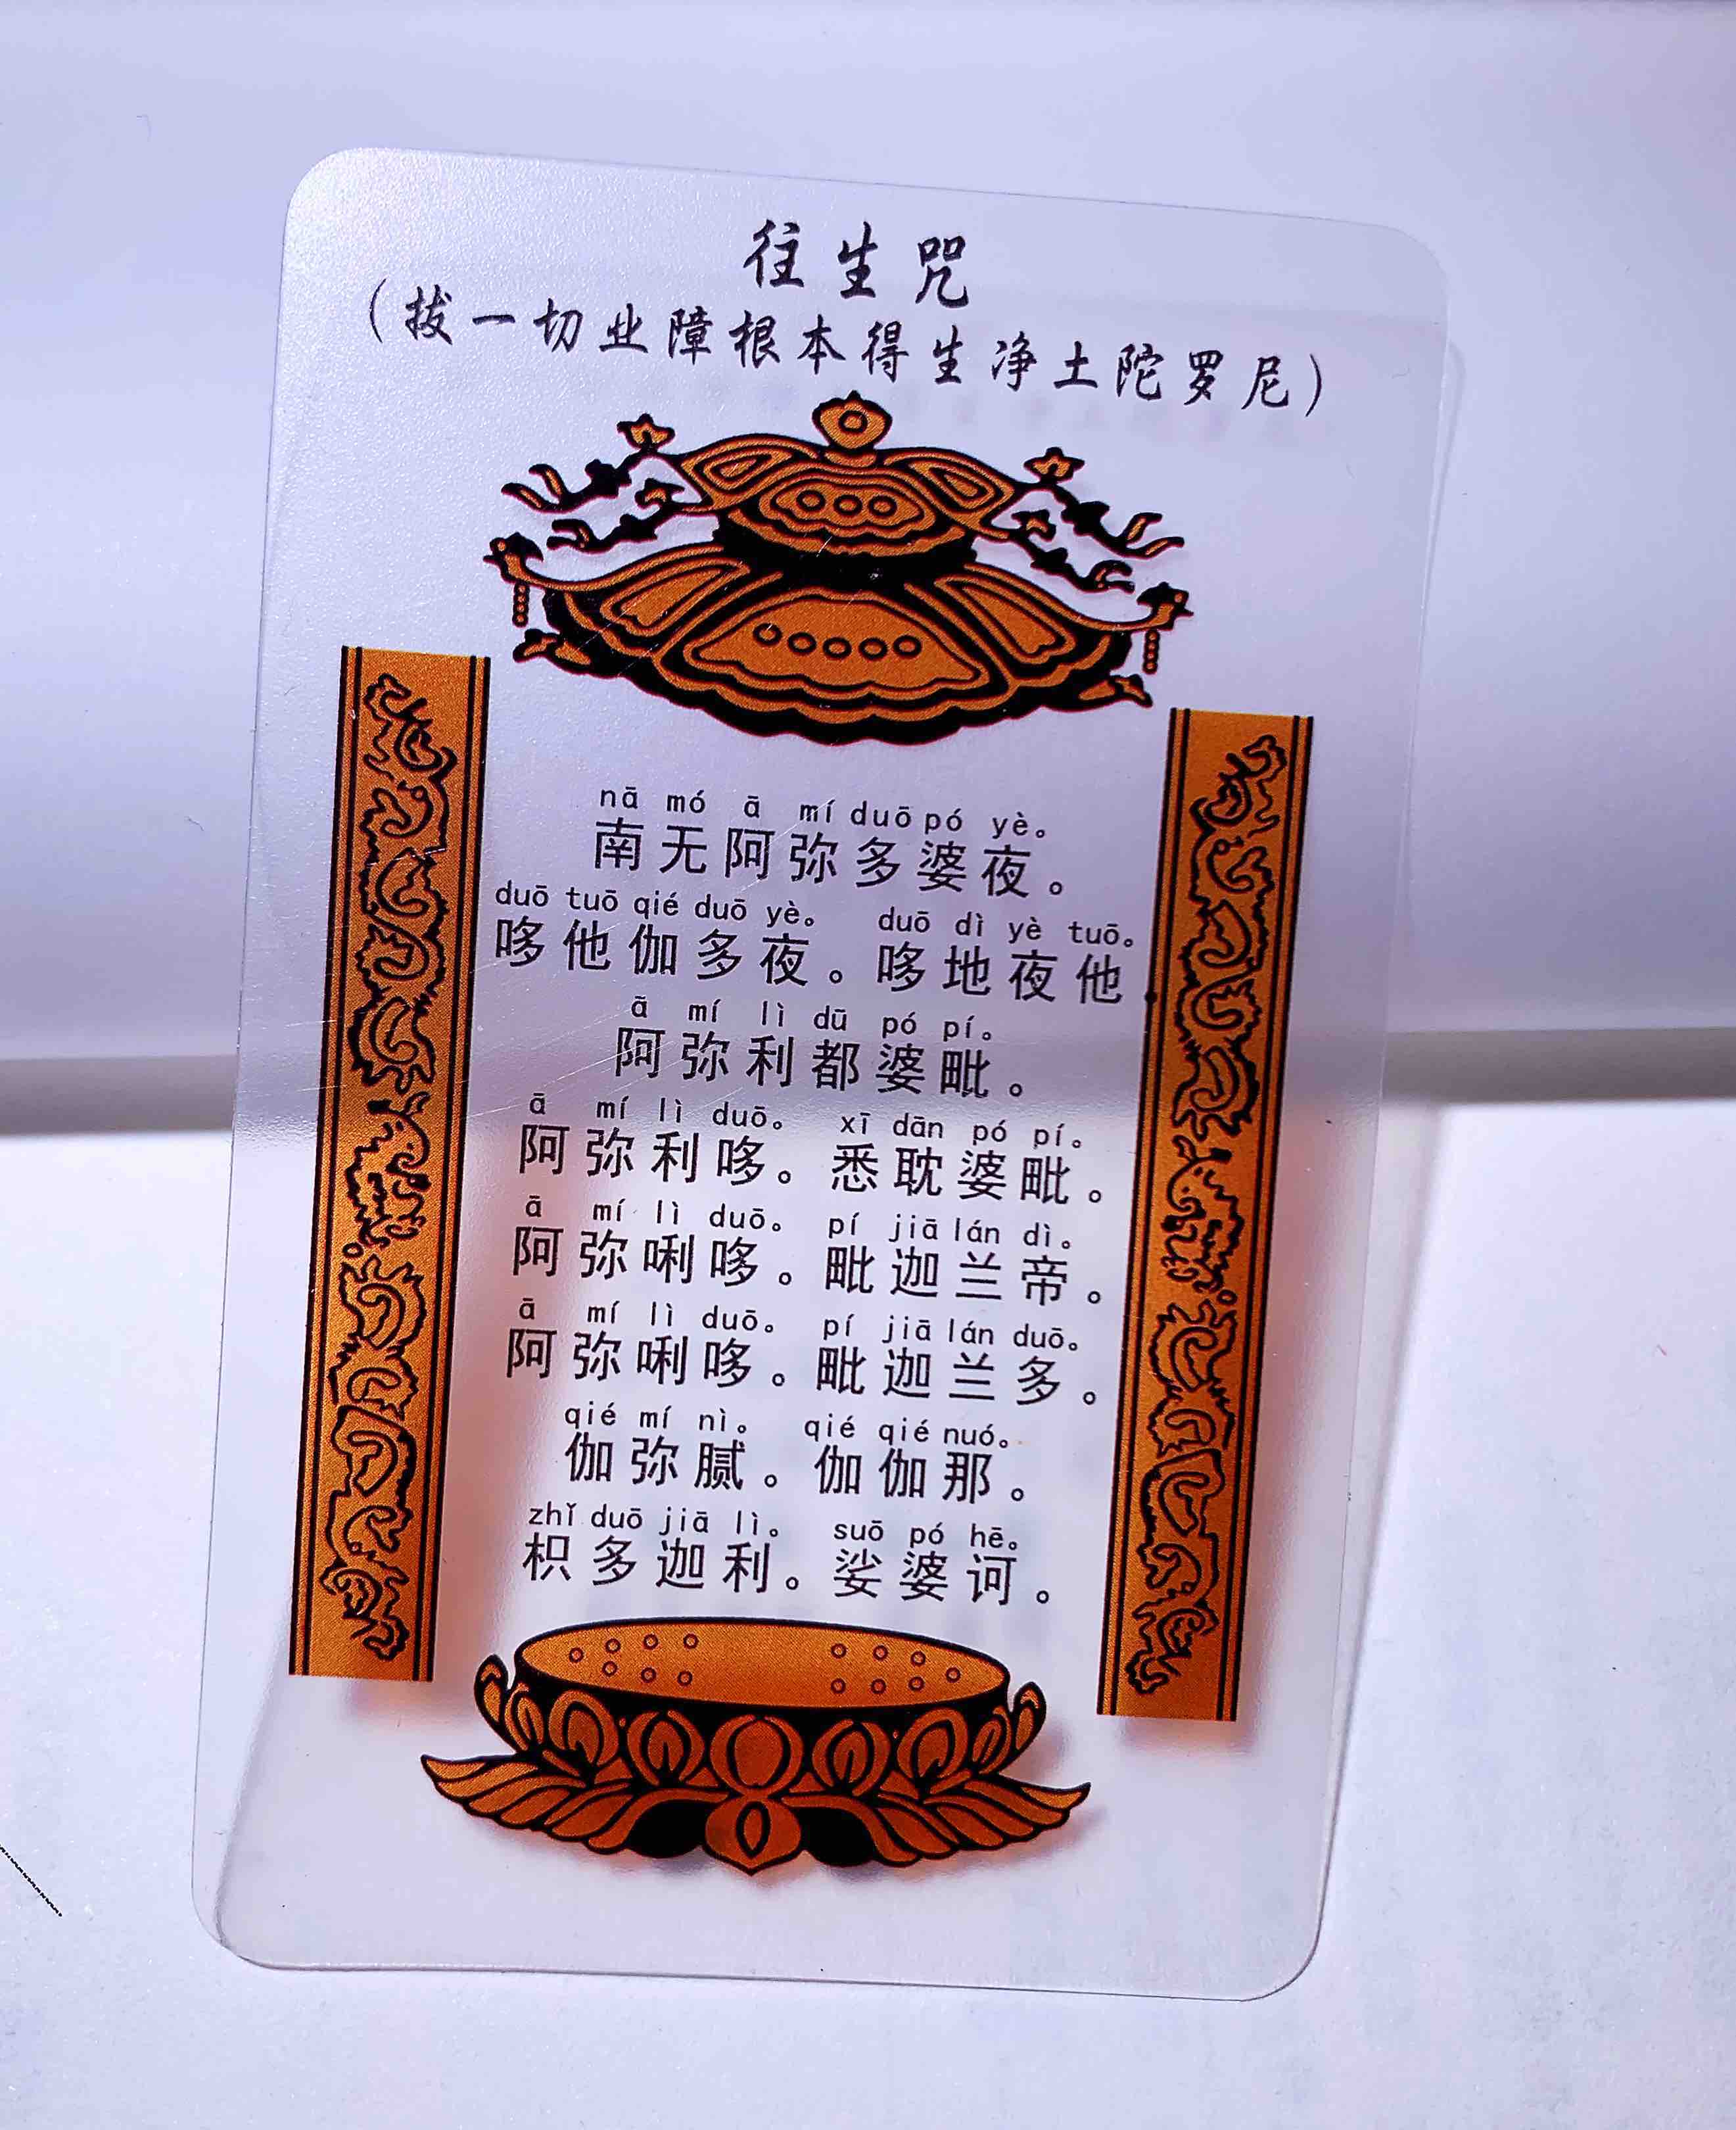 往生咒
(拔一切业障根本得生净土陀罗尼)
nā mó ā mí duō pó yè。
南无阿弥多婆夜。
duō tuō qié duō yè。 duō dì yè tuō。
哆他伽多夜。哆地夜他
ā mí lì dū pó pí。
阿弥利都婆毗。
ā mí lì duō。 xī dān pó pí。
阿弥利哆。悉耽婆毗。
ā mí lì duō。 pí jiā lán dì。
阿弥唎哆。毗迦兰帝。
ā mí lì duō。 pí jiā lán duō。
阿弥唎哆。毗迦兰多。
qié mí nì。 qié qié nuó。
伽弥腻。伽伽那。
zhǐ duō jiā lì。 suō pó hē。
枳多迦利。娑婆诃。